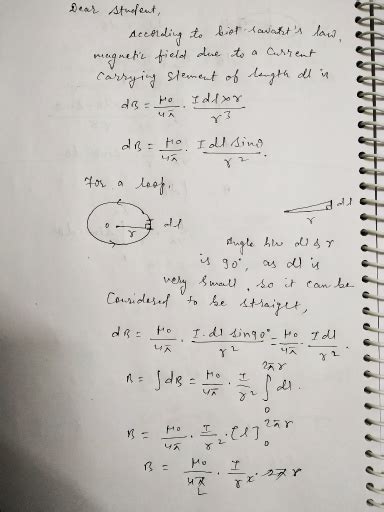 Dear Student,
According to biot-savart's law,
magnetic field due to a current
carrying element of length dl is
dB = μ0/4π · I dl×r/r³
dB = μ0/4π · I dl sinθ/r².
For a loop.
o r dl
r dl
Angle b/w dl & r
is 90°, as dl is
very small, so it can be
Considered to be straight,
dB = μ0/4π · I·dl sin90°/r² = μ0/4π · Idl/r².
B = ∫dB = μ0/4π · I/r² ∫₀^2πr dl.
B = μ0/4π · I/r² · [l]₀^2πr
B = μ0/4π · I/r² · 2πr
2